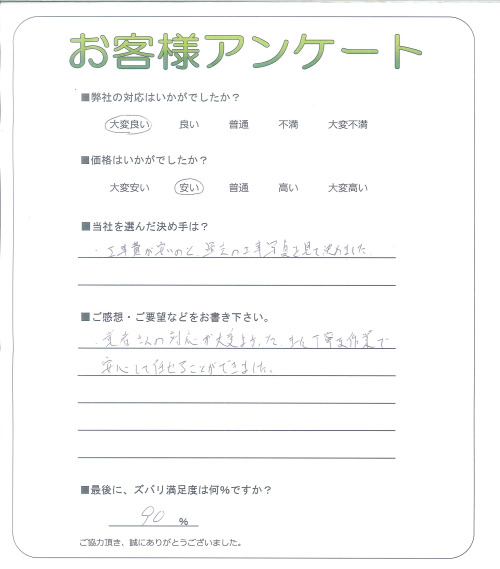 お客様アンケート
■弊社の対応はいかがでしたか？
大変良い 良い 普通 不満 大変不満
■価格はいかがでしたか？
大変安い 安い 普通 高い 大変高い
■当社を選んだ決め手は？
・工事費が安いのと、過去の工事写真を見て決めました
■ご感想・ご要望などをお書き下さい。
業者さんの対応が大変よかった、また丁寧な作業で
安心して任せることができました。
■最後に、ズバリ満足度は何％ですか？
90 ％
ご協力頂き、誠にありがとうございました。